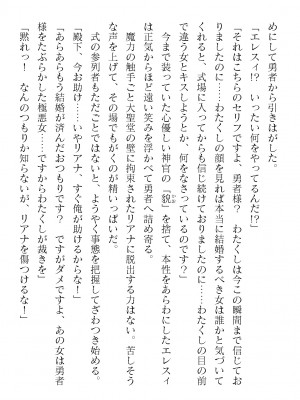 めにして勇者から引きはがした。
「エレスィ!? いったい何をやってるんだ!?」
「それはこちらのセリフですよ、勇者様? わたくしは今この瞬間まで信じてお
りましたのに……わたくしの顔を見れば本当に結婚するべき女は誰かと気づいて
くれると、式場に入ってからも信じ続けておりましたのに……わたくしの目の前
で違う女とキスしようとか、何をなさっているのです?」
今まで装っていた心優しい神官の「貌」を捨て、本性をあらわにしたエレスィ
は正気からほど遠い笑みを浮かべて勇者へ詰め寄る。
魔力の触手ごと大聖堂の壁に拘束されたリアナに脱出する力はない。苦しそう
な声を上げて、その場でもがくのが精いっぱいだ。
式の参列者もただごとではないと、ようやく事態を把握してざわつき始める。
「殿下、今お助け……いやリアナ、すぐ俺が助けるからな!」
「あらあらもう結婚が済んだおつもりです? ですがダメですよ、あの女は勇者
様をたぶらかした極悪女……ですからわたくしが裁きを」
「黙れっ! なんのつもりか知らないが、リアナを傷つけるな!」